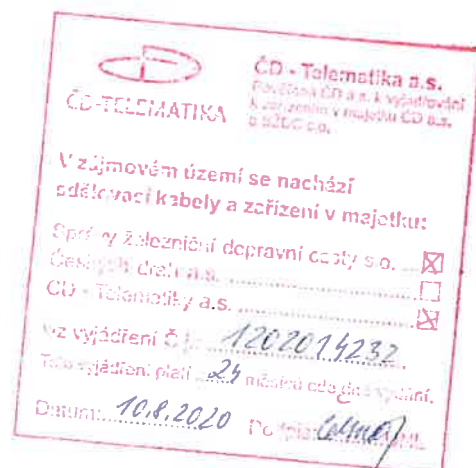 ČD-TELEMATIKA
ČD - Telematika a.s.
Pověřena ČD a.s. k vyjadřování
k zařízením v majetku ČD a.s.
a SŽDC s.o.
V zájmovém území se nachází
sdělovací kabely a zařízení v majetku:
Správy železniční dopravní cesty s.o. ... ☒
Českých drah a.s. ... ☐
ČD - Telematiky a.s. ... ☒
viz vyjádření Č.j.: 1202014232
Toto vyjádření platí 24 měsíců ode dne vydání.
Datum: 10.8.2020 Podpis: